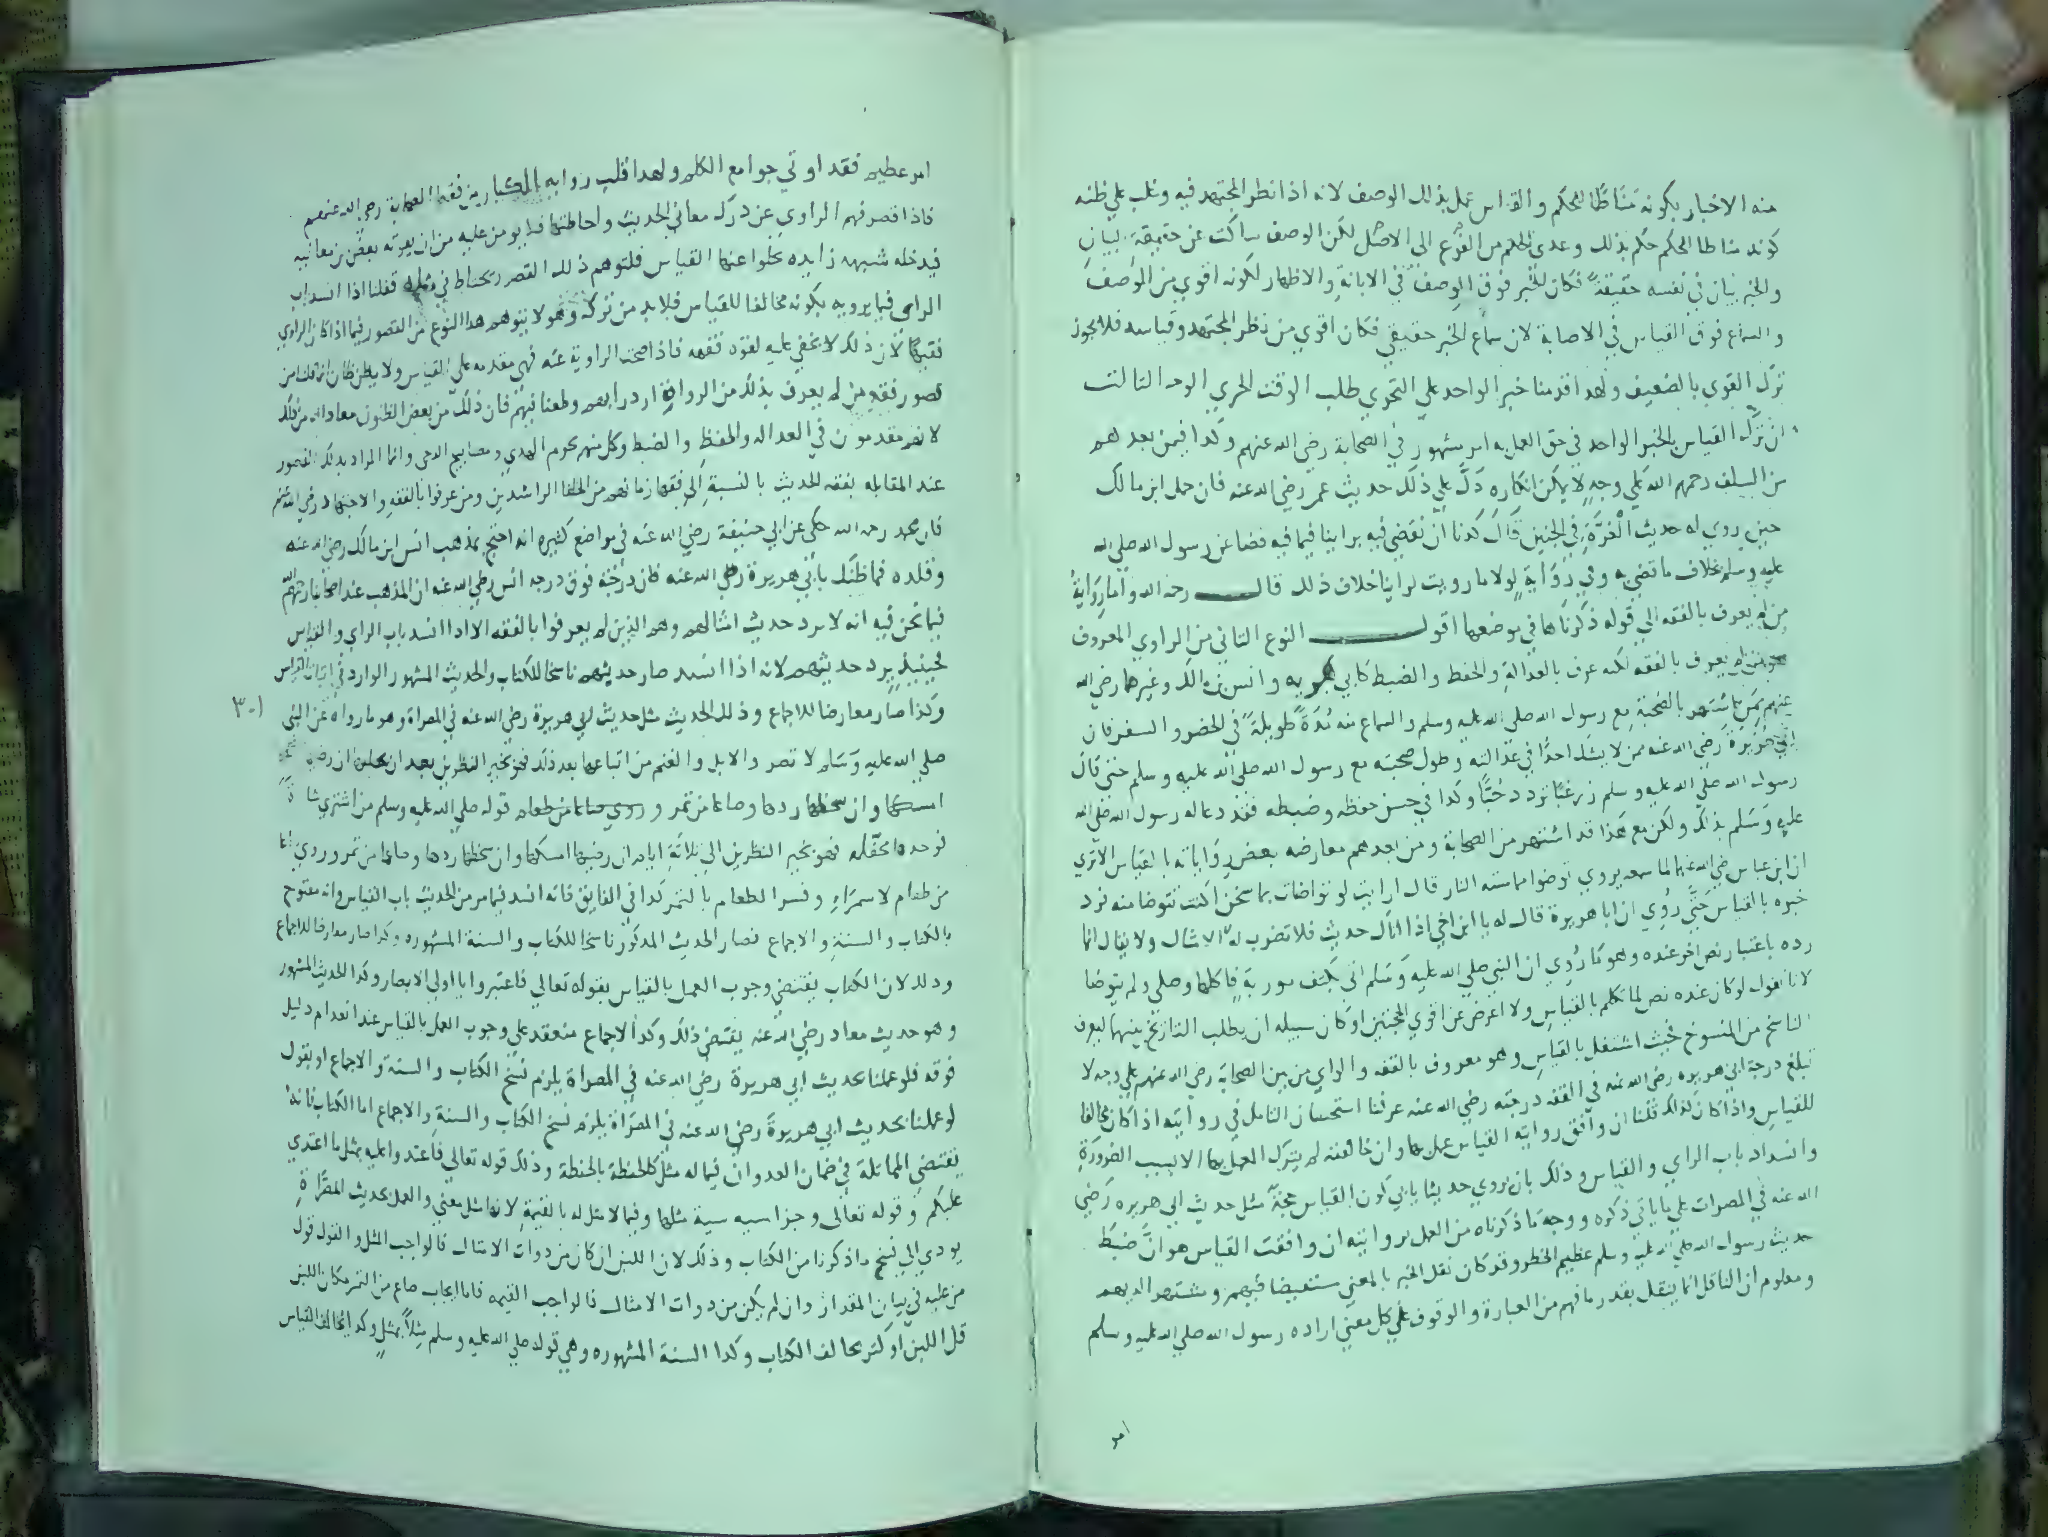 منه الاخبار بكونه مناطا للحكم والقياس عمل بذلك الوصف لانه اذا نظر المجتهد فيه وغلب علي ظنه
كونه مناطا للحكم حكم بذلك وعدي الحكم من الفرع الى الاصل لكن الوصف ساكت عن حقيقة البيان
والخبر بيان في نفسه حقيقة فكان الخبر فوق الوصف في الابانة والاظهار لكونه اقوي من الوصف
والسماع فوق القياس في الاصابة لان سماع الخبر حقيقي فكان اقوي من نظر المجتهد وقياسه فلا يجوز
ترك القوي بالضعيف ولهذا قدمنا خبر الواحد علي التحري طلب الوقت الحري الوجه الثالث
ان ترك القياس بالخبر الواحد في حق العمل به امر مشهور في الصحابة رضي الله عنهم وكذا فيمن بعدهم
من السلف رحمهم الله علي وجه لا يمكن انكاره دل علي ذلك حديث عمر رضي الله عنه فان حمل ابن مالك
حين روي له حديث الغرة في الجنين قال كدنا ان نقضي فيه براينا فيما فيه قضا عن رسول الله صلي الله
عليه وسلم بخلاف ما قضي به وفي رواية لولا ما رويت لراينا خلاف ذلك قال رحمه الله واما رواية
من لم يعرف بالفقه الي قوله ذكرناها في موضعها اقول النوع الثاني من الراوي المعروف
من لم يعرف بالفقه لكنه عرف بالعدالة والحفظ والضبط كابي هريرة وانس بن مالك وغيرهما رضي الله
عنهم ممن اشتهر بالصحبة مع رسول الله صلى الله عليه وسلم والسماع منه مدة طويلة في الحضر والسفر فان
ابي هريرة رضي الله عنه ممن لا يشك احد في عدالته وطول صحبته مع رسول الله صلى الله عليه وسلم حتى قال
رسول الله صلى الله عليه وسلم زر غبا تزدد حبا وكذا في حسن حفظه وضبطه فقد دعا له رسول الله صلى الله
عليه وسلم بذلك ولكن مع هذا قد اشتهر من الصحابة ومن بعدهم معارضة بعض رواياته بالقياس الا تري
ان ابن عباس رضي الله عنهما لما سمعه يروي توضوا مما مسته النار قال ارايت لو توضات بما سخن اكنت تتوضا منه فرد
خبره بالقياس حتى روي ان ابا هريرة قال له يا ابن اخي اذا اتاك حديث فلا تضرب له الامثال ولا يقال انما
رده باعتبار نص اخر عنده وهو ما روي ان النبي صلي الله عليه وسلم اتي بكتف موربة فاكلها وصلي ولم يتوضا
لانا نقول لو كان عنده نص لما تكلم بالقياس ولا اعرض عن اقوي الحجتين او كان سبيله ان يطلب التاريخ بينهما ليعرف
الناسخ من المنسوخ فحيث اشتغل بالقياس وهو معروف بالفقه والراي من بين الصحابة رضي الله عنهم علي وجه لا
تبلغ درجة ابي هريرة رضي الله عنه في الفقه درجته رضي الله عنه عرفنا استحسان التامل في روايته اذا كان مخالفا
للقياس واذا كان لذلك قلنا ان وافق روايته القياس عمل بها وان خالفته لم يترك العمل بها الا بسبب الضرورة
وانسداد باب الراي والقياس وذلك بان يروي حديثا يابي كون القياس حجة مثل حديث ابي هريره رضي
الله عنه في المصرات علي ما ياتي ذكره ووجه ما ذكرناه من العمل بروايته ان وافقت القياس هو ان ضبط
حديث رسول الله صلى الله عليه وسلم عظيم الخطر وقد كان نقل الخبر بالمعني مستفيضا فيهم ومشتهرا لديهم
ومعلوم ان الناقل انما ينقل بقدر ما فهم من العبارة والوقوف علي كل معني اراده رسول الله صلي الله عليه وسلم
امر
امر عظيم فقد اوتي جوامع الكلم ولهذا قلت روايه الكبار من فقها الصحابة رضي الله عنهم
فاذا قصر فهم الراوي عن درك معاني الحديث واحاطتها فلا يومن عليه من ان يفوته بعض من معانيه
فيدخله شبهه زايده يخلوا عنها القياس فلتوهم ذلك القصر يحتاط في مثله فقلنا اذا انسد باب
الراي فيما يرويه بكونه مخالفا للقياس فلا بد من تركه وهو لا يتوهم هذا النوع من القصور فيما اذا كان الراوي
فقيها لان ذلك لا يخفي عليه لقوه فقهه فاذا صحت الرواية عنه فهي مقدمه علي القياس ولا يظن ظان ان قلنا من
قصور فقه من لم يعرف بذلك من الرواة ازدرا بهم وطعنا فيهم فان ذلك من بعض الظنون معاذ الله من ذلك
لانهم مقدمون في العداله والحفظ والضبط وكل منهم نجوم الهدي ومصابيح الدجى وانما المراد بذلك القصور
عند المقابله بفقه الحديث بالنسبة الي فقها زمانهم من الخلفا الراشدين ومن عرفوا بالفقه والاجتهاد رضي الله عنهم
فان محمد رحمه الله حكى عن ابي حنيفة رضي الله عنه في مواضع كثيره انه احتج بمذهب انس ابن مالك رضي الله عنه
وقلده فما ظنك بابي هريرة رضي الله عنه فان درجته فوق درجه انس رضي الله عنه ان المذهب عند اصحابنا رحمهم الله
فيما نحن فيه انه لا يرد حديث امثالهم وهم الذين لم يعرفوا بالفقه الا اذا انسد باب الراي والقياس
فحينيذ يرد حديثهم لانه اذا انسد صار حديثهم ناسخا للكتاب والحديث المشهور الوارد في اثبات القياس
وكذا صار معارضا للاجماع وذلك الحديث مثل حديث ابي هريرة رضي الله عنه في المصراة وهو ما رواه عن النبي
٣٠١
صلي الله عليه وسلم لا تصروا الابل والغنم من ابتاعها بعد ذلك فهو بخير النظرين بعد ان يحلبها ان رضيها
امسكها وان سخطها ردها وصاعا من تمر وروي صاعا من طعام قوله صلي الله عليه وسلم من اشتري شاة
فوجدها محفلة فهو بخير النظرين الي ثلاثة ايام ان رضيها امسكها وان سخطها ردها وصاعا من تمر وروي صاعا
من طعام لا سمراء وفسر الطعام بالتمر كذا في الفايق فانه انسد فيما مر من الحديث باب القياس وانه مفتوح
بالكتاب والسنة والاجماع فصار الحديث المذكور ناسخا للكتاب والسنة المشهوره وكذا صار معارضا للاجماع
وذلك لان الكتاب يقتضي وجوب العمل بالقياس بقوله تعالي فاعتبروا يا اولي الابصار وكذا الحديث المشهور
وهو حديث معاد رضي الله عنه يقتضي ذلك وكذا الاجماع منعقد علي وجوب العمل بالقياس عند انعدام دليل
فوقه فلو عملنا بحديث ابي هريرة رضي الله عنه في المصراة يلزم نسخ الكتاب والسنة والاجماع او يقول
لو عملنا بحديث ابي هريرة رضي الله عنه في المصراة يلزم نسخ الكتاب والسنة والاجماع اما الكتاب فانه
يقتضي المماثلة في ضمان العدوان فيما له مثل كالحنطة بالحنطة وذلك قوله تعالي فاعتدوا عليه بمثل ما اعتدي
عليكم وقوله تعالى وجزا سيه سية مثلها وفيما لا مثل له بالقيمة لانها مثل معني والعمل بحديث المصراة
يودي الي نسخ ما ذكرنا من الكتاب وذلك لان اللبن ان كان من دوات الامثال فالواجب المثل والقول قول
من عليه في بيان المقدار وان لم يكن من دوات الامثال فالواجب القيمه فاما ايجاب صاع من التمر مكان اللبن
قل اللبن او كثر مخالف الكتاب وكذا السنة المشهوره وهي قوله صلي الله عليه وسلم مثلا بمثل وكذا يخالف القياس